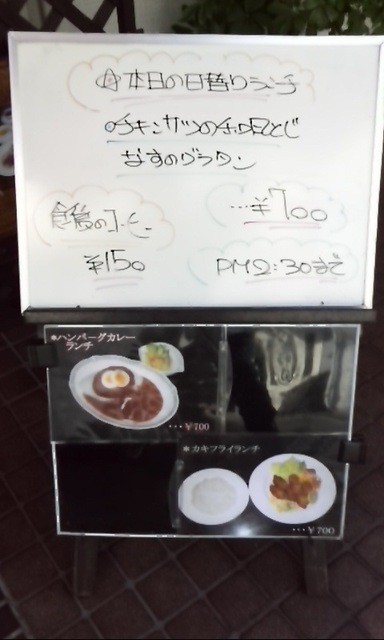 本日の日替りランチ
チキンカツの玉子とじ
なすのグラタン
…¥700
食後のコーヒー
¥150
PM2:30まで
*ハンバーグカレー
ランチ
…¥700
*カキフライランチ
…¥700